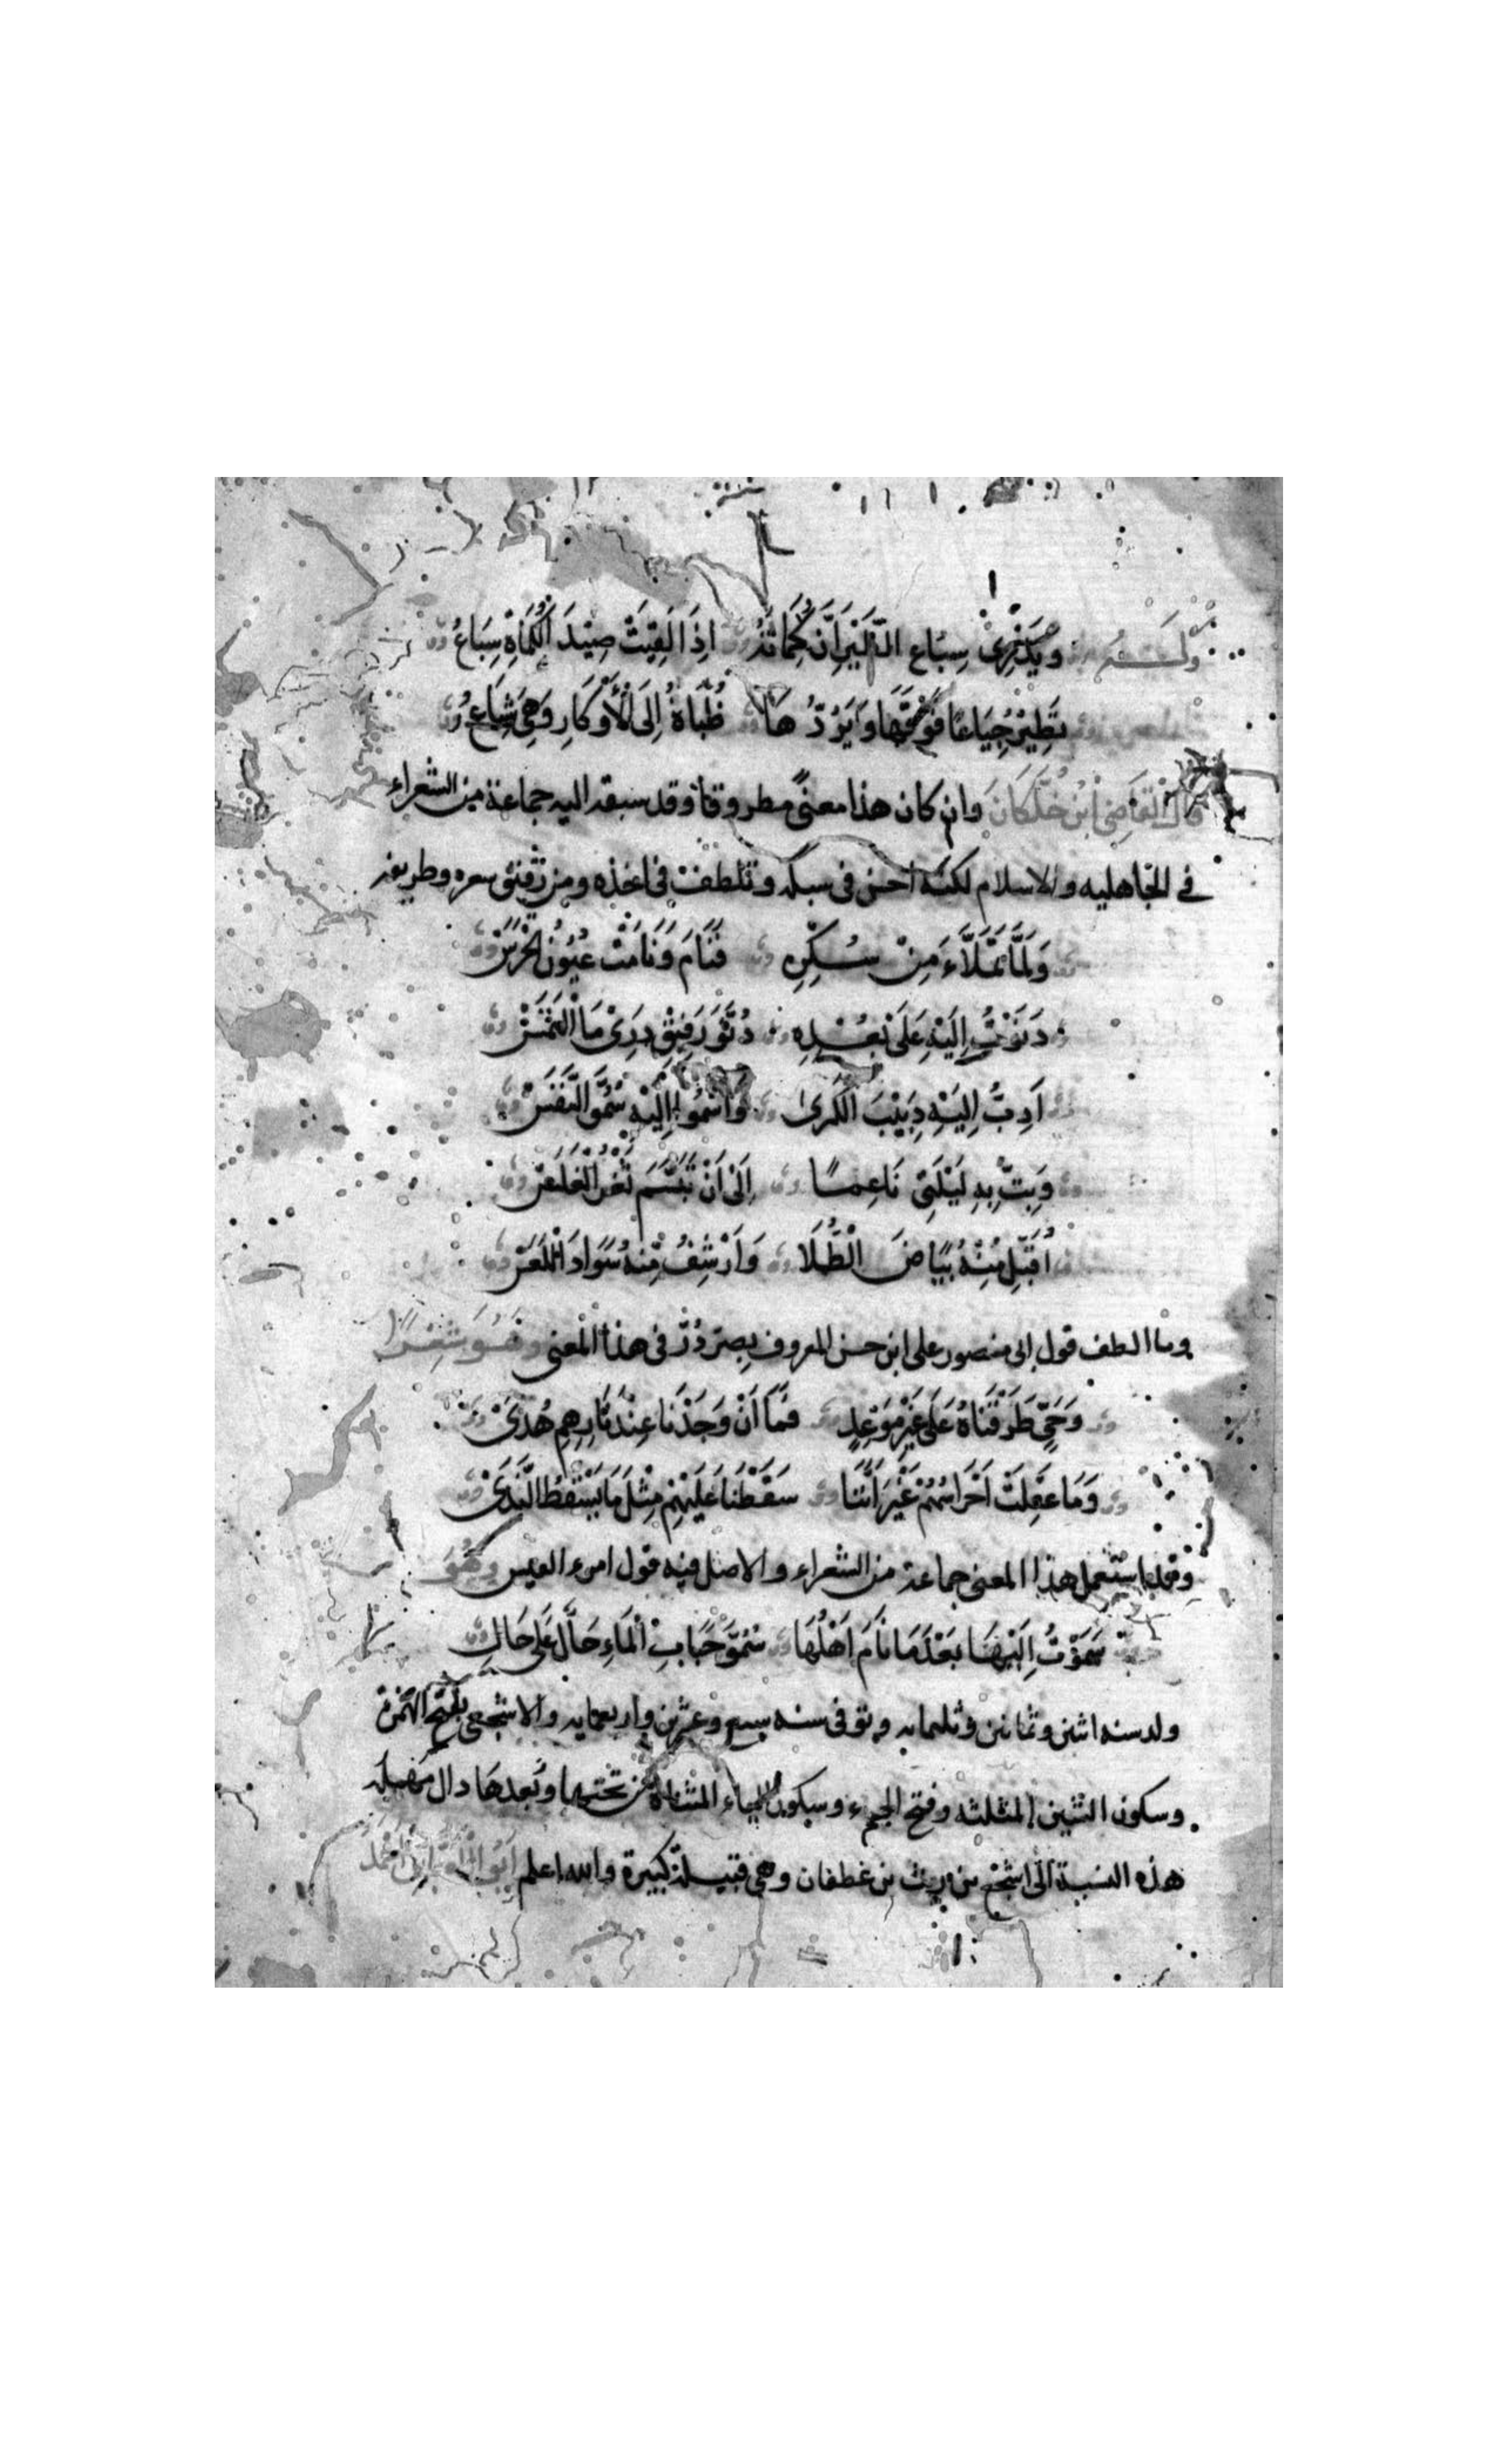 ولـــه ويدري سباع الطير ان كماته اذا لقيت صيد الكماة سباع
تطير جياعا فوقها وايردها ظباة الى الاوكار وهي شباع
قال القاضي ابن خلكان وان كان هذا معنى مطروقا وقد سبقه اليه جماعة من الشعراء
في الجاهليه والاسلام لكنه احسن في سبكه وتلطف في اخذه ومن رقيق شعره وطريفه
ولما تملاء من سكره فنام ونامت عيون الحرس
دنوت اليه على بعده دنو رفيق درى ما التمس
ادب اليه دبيب الكرى واسموا اليه سمو النفس
وبت به ليلتي ناعما الى ان تبسم ثغر الغلس
اقبل منه بياض الطلا وارشف منه سواد اللعس
وما الطف قول ابي منصور علي ابن حسن المعروف بصر در في هذا المعنى وهو شعرا
وحي طرقناه على غير موعد فما ان وجدنا عند نارهم هدى
وما غفلت احراسهم غير اننا سقطنا عليهم مثل ما يسقط الندى
وقد استعمل هذا المعنى جماعة من الشعراء والاصل فيه قول امرء القيس وهو
سموت اليها بعد ما نام اهلها سمو حباب الماء حالا على حال
ولد سنه اثنين وثمانين وثلثمايه وتوفى سنه ست وعشرين واربعمايه والاشجعي بفتح الهمزة
وسكون الشين المثلثه وفتح الجيم وسكون الياء المثناة من تحتها وبعدها دال مهمله
هذه النسبة الى اشجع بن ريث بن غطفان وهي قبيلة كبيرة والله اعلم